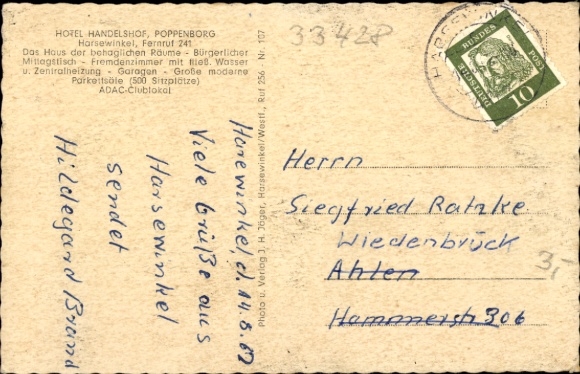 HOTEL HANDELSHOF, POPPENBORG
Harsewinkel, Fernruf 241
Das Haus der behaglichen Räume - Bürgerlicher
Mittagstisch - Fremdenzimmer mit fließ. Wasser
u. Zentralheizung - Garagen - Große moderne
Parkettsäle (500 Sitzplätze)
ADAC-Clublokal
Harsewinkel, d. 14.8.62
Viele Grüße aus
Harsewinkel
sendet
Hildegard Brand
Photo u. Verlag J. H. Jäger, Harsewinkel/Westf., Ruf 256 - Nr. 107
33428
DEUTSCHE BUNDES POST
10
Herrn
Siegfried Ratzke
Wiedenbrück
Ahlen
Hammerstr 306
3,-